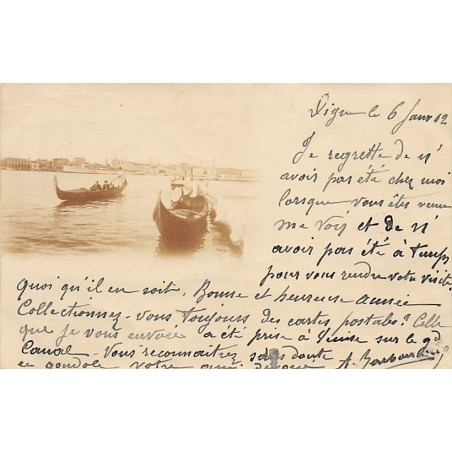 Digne le 6 Janv 02
Je regrette de n'
avoir pas été chez moi
lorsque vous êtes venue
me voir et de n'
avoir pas été à temps
pour vous rendre votre visite.
Quoi qu'il en soit, Bonne et heureuse année
Collectionnez-vous toujours des cartes postales? Celle
que je vous envoie a été prise à Venise sur le gd
Canal - Vous reconnaitrez sans doute
en gondole votre ami